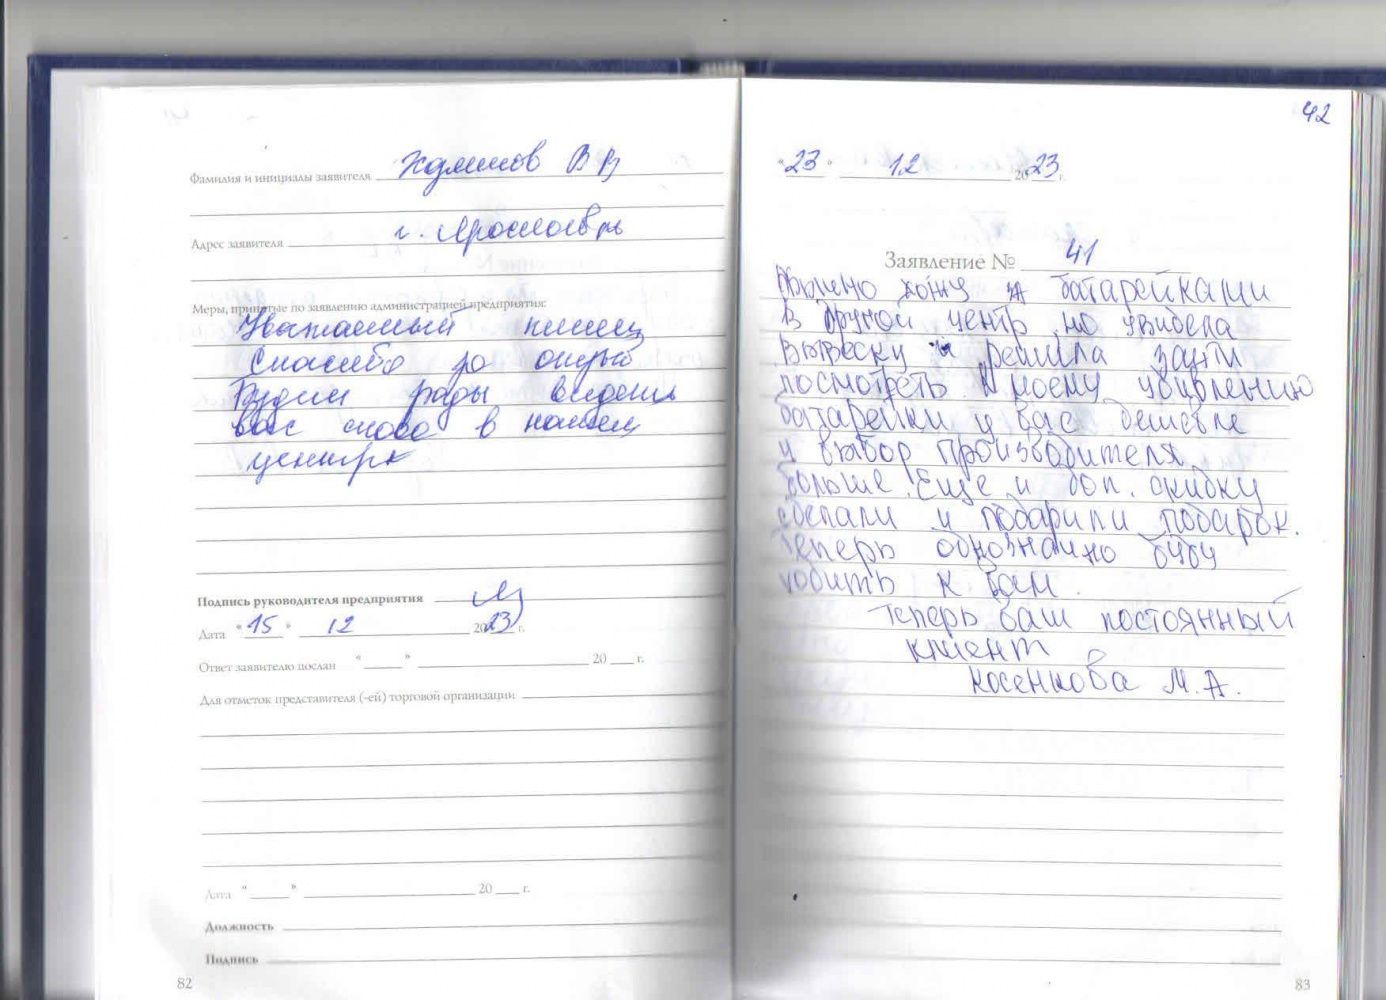 Фамилия и инициалы заявителя В В
Адрес заявителя г. Ярославль
Меры, принятые по заявлению администрацией предприятия:
Уважаемый
Спасибо за отзыв
Будем рады видеть
вас снова в нашем
центре
Подпись руководителя предприятия
Дата "15" 12 2023 г.
Ответ заявителю послан "___" ___ 20 ___ г.
Для отметок представителя (-ей) торговой организации
Дата "___" ___ 20 ___ г.
Должность
Подпись
82
42
"23" 12 2023 г.
Заявление № 41
хожу за батарейками
в другой центр, но увидела
вывеску и решила зайти
посмотреть. К моему удивлению
батарейки у вас дешевле
и выбор производителя
больше. Еще и доп. скидку
сделали и подарили подарок.
Теперь однозначно буду
ходить к вам.
Теперь ваш постоянный
клиент
Косенкова М.А.
83